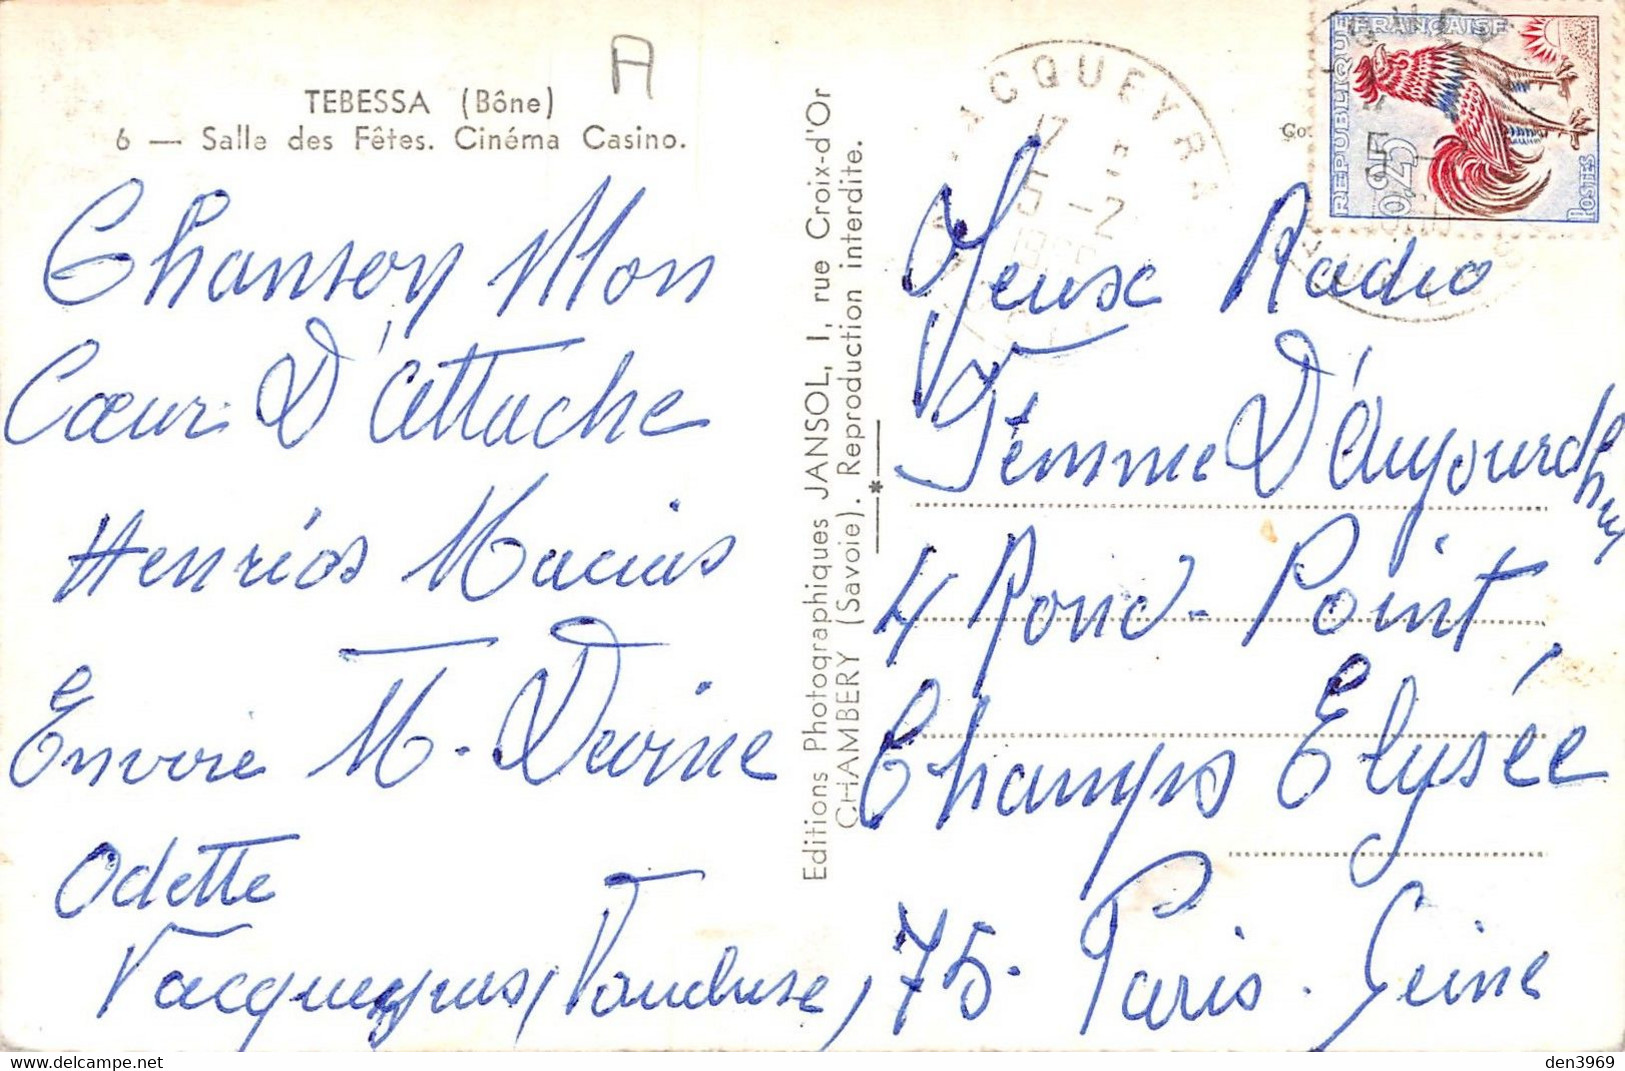 A
TEBESSA (Bône)
6 — Salle des Fêtes. Cinéma Casino.
Chanson Mon
Cœur D'Attache
Henrios Macias
Envoie M. Devine
Odette
Vacqueyras (Vaucluse)
Editions Photographiques JANSOL, 1, rue Croix-d'Or
CHAMBERY (Savoie). Reproduction interdite.
VACQUEYRAS
17
5 -2
REPUBLIQUE FRANÇAISE
0,25
POSTES
Jeux Radio
Femme D'Aujourdhui
4 Rond-Point,
Champs Elysée
75. Paris. Seine
den3969